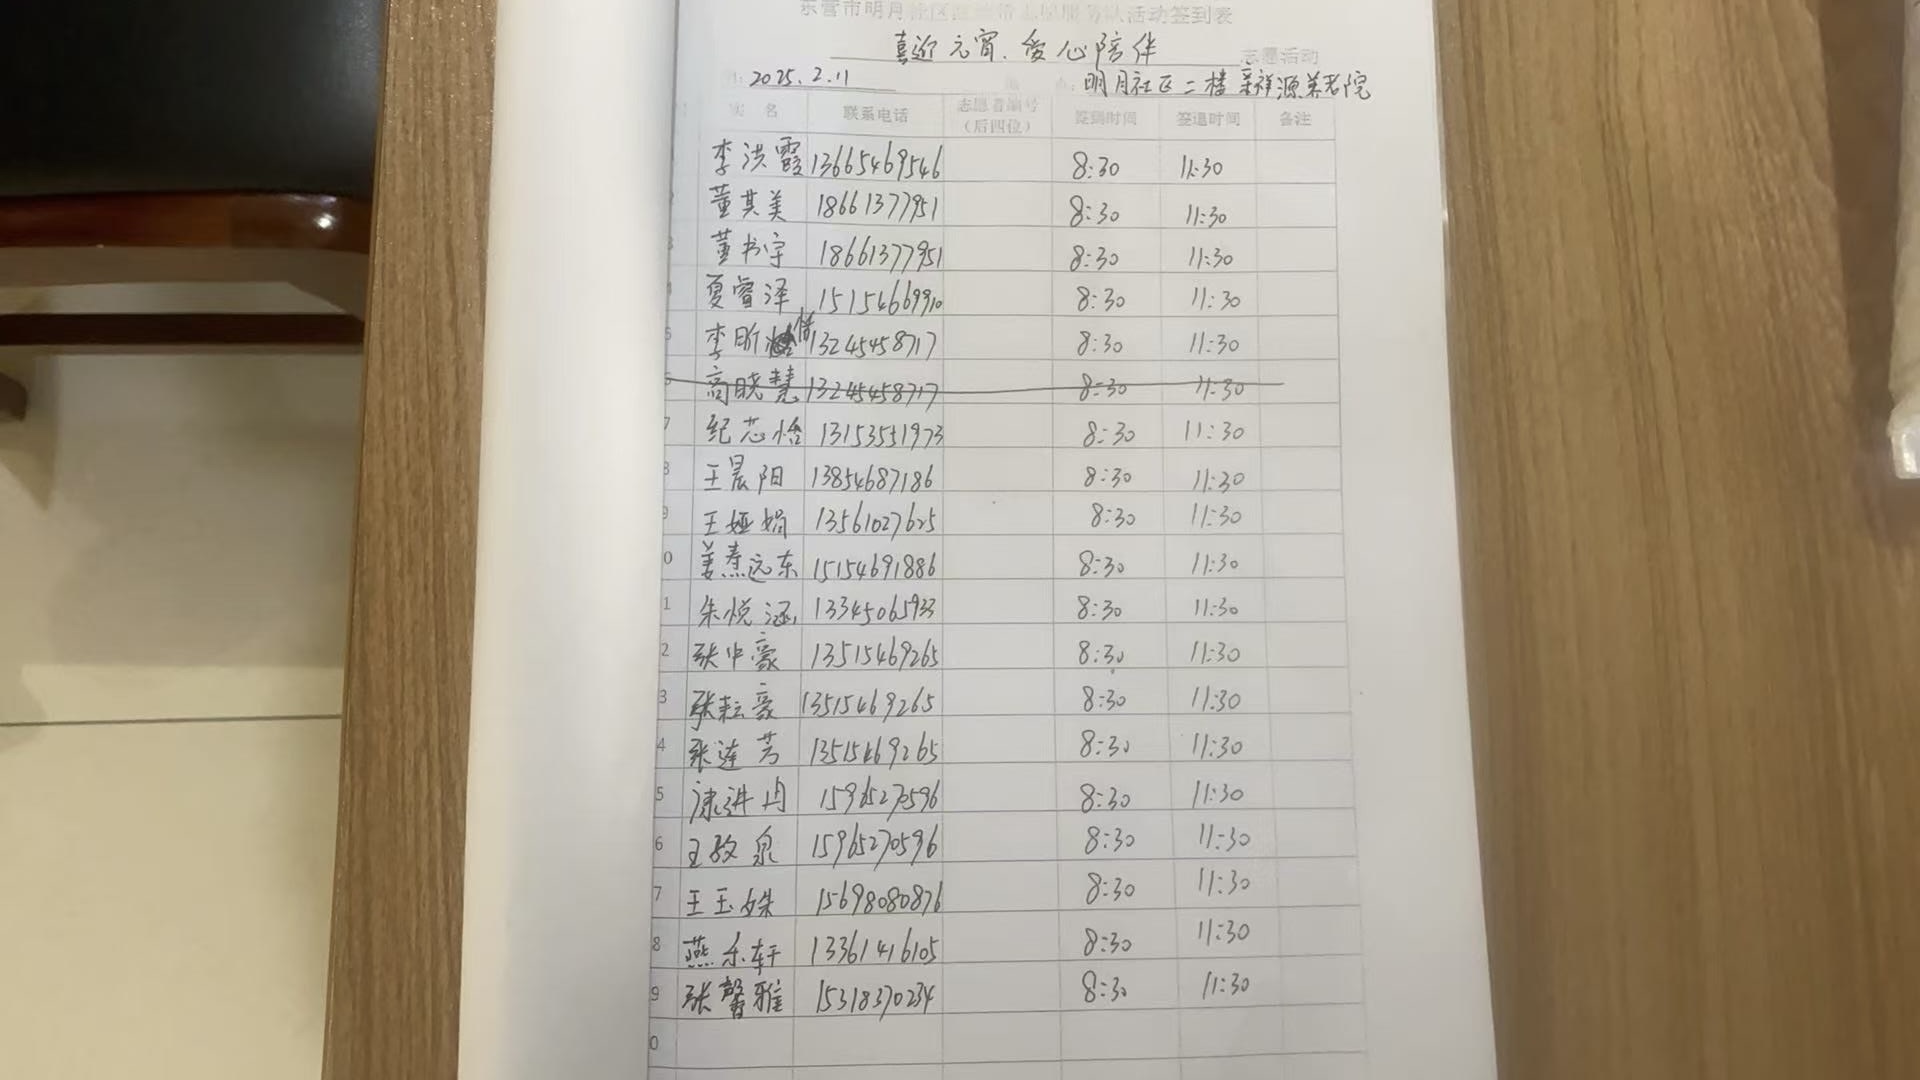 东营市明月社区 志愿服务队活动签到表
喜迎元宵、爱心陪伴 志愿活动
2025.2.11 明月社区二楼 祥源养老院
姓 名 联系电话 志愿者编号（后四位） 签到时间 签退时间 备注
李洪霞 13665469546 8:30 11:30
董其美 18661377951 8:30 11:30
3 董书宇 18661377951 8:30 11:30
夏睿泽 15154669910 8:30 11:30
5 李昕 13245458717 8:30 11:30
高晓慧 13245458717 8:30 11:30
7 纪芯悟 13153551973 8:30 11:30
8 王晨阳 13854687186 8:30 11:30
9 王娅娟 13561027625 8:30 11:30
0 姜焘远东 15154691886 8:30 11:30
1 朱悦涵 13345065933 8:30 11:30
2 张中豪 13515469265 8:30 11:30
3 张耘豪 13515469265 8:30 11:30
4 张莲芳 13515469265 8:30 11:30
5 康进丹 15965270596 8:30 11:30
6 王敬泉 15965270596 8:30 11:30
7 王玉姝 15698080876 8:30 11:30
8 燕乐轩 13361416105 8:30 11:30
9 张馨雅 15318370234 8:30 11:30
0